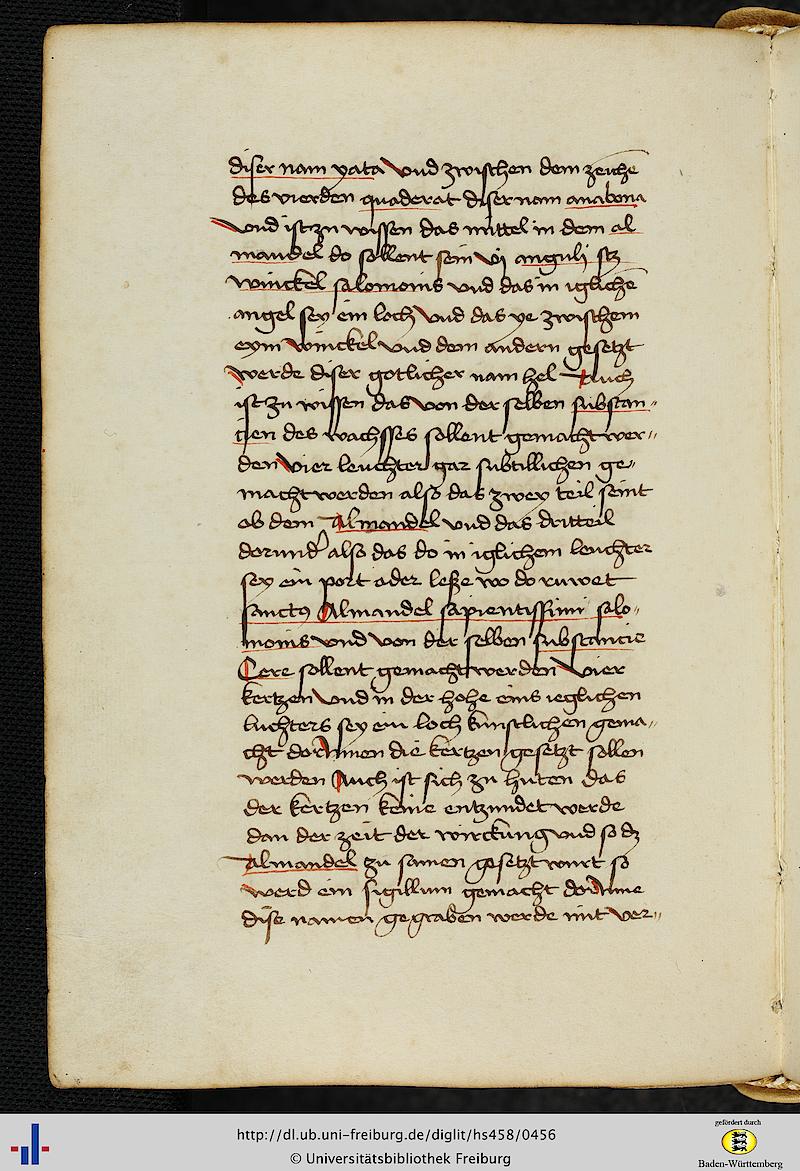 diser nam yata Vnd zwischen dem zeichē
des vierden quaderat diser nam anabona
Vnd ist zu wissen das mittel in dem al
mandel do sollent sein vj anguli sz
winckel salomonis vnd das in iglichē
angel sey ein loch Vnd das ye zwischem
eym winckel vnd dem andern gesetzt
werde diser gotlicher nam hel Auch
ist zu wissen das von der selben substan-
cien des wachsses sollent gemacht wer-
den Vier leuchter gar subtillichen ge-
macht werden also das zwey teil seint
ob dem Almandel vnd das dritteil
dorund' also das do in iglichem leuchter
sey ein port oder leße wo do ruwet
sanctꝰ Almandel sapientissimi salo-
monis vnd von der selben substancie
Cere sollent gemacht werden Vier
kertzen Vnd in der hohe eins ieglichen
luchters sey ein loch kunstlichen gema-
cht dor Innen die kertzen gesetzt sollen
werden Auch ist sich zu huten das
der kertzen keine entzundet werde
dan der zeit der wirckung vnd so dz
Almandel zu samen gesetzt wurt so
werd ein sigillum gemacht dor Inne
dise namen gegraben werde mit ver-
http://dl.ub.uni-freiburg.de/diglit/hs458/0456
© Universitätsbibliothek Freiburg
gefördert durch
Baden-Württemberg